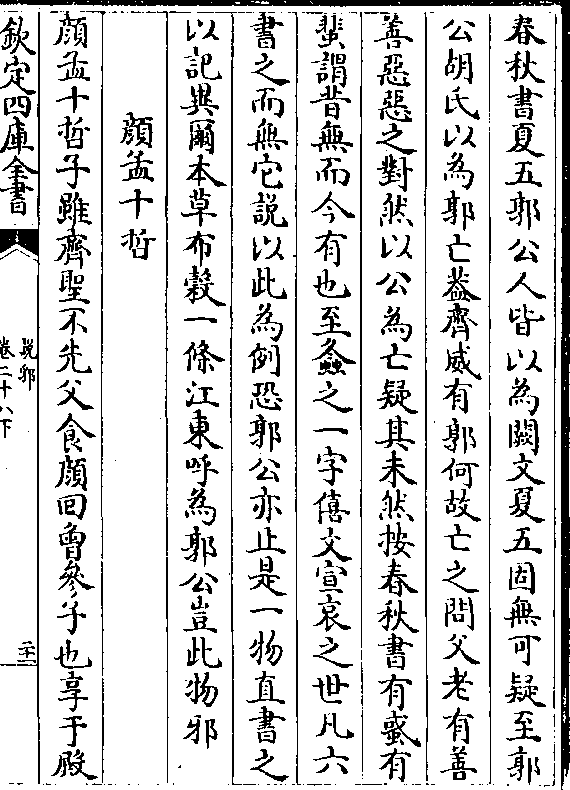 春秋書夏五郭公人皆以為闕文夏五固無可疑至郭
公胡氏以為郭亡葢齊威有郭何故亡之問父老有善
善惡惡之對然以公為亡疑其未然按春秋書有蜮有
蜚謂昔無而今有也至螽之一字僖文宣哀之世凡六
書之而無它説以此為例恐郭公亦止是一物直書之
以記異爾本草布穀一條江東呼為郭公豈此物邪
顔孟十哲
顔孟十哲子雖齊聖不先父食顔回曾參子也享于殿
欽定四庫全書
説郛
卷二十八下
二十一